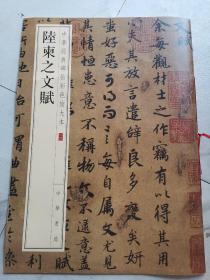 文賦
余每觀材士之作竊有以得其用
心夫其放言遣辭良多變矣妍
蚩好惡可得而言每自屬文尤見
其情恒患意不稱物文不逮意蓋
中華經典碑帖彩色放大本
陸柬之文賦
中華書局